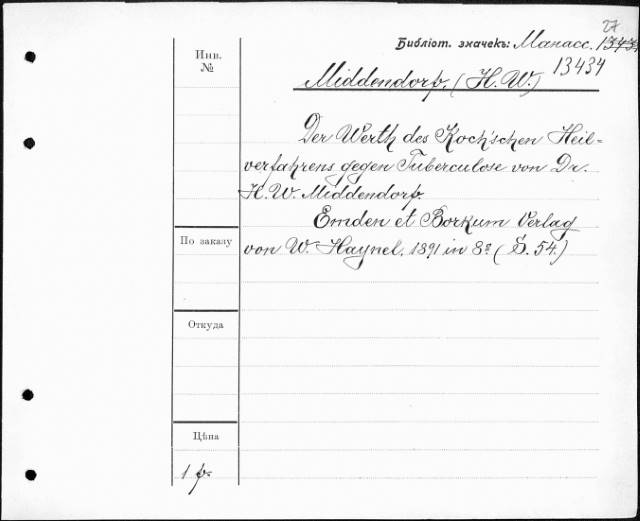 27
Библіот. значекъ: Манасс. 1343
13434
Инв.
№
Middendorp. (H. W.)
Der Werth des Koch'schen Heil=
verfahrens gegen Tuberculose von Dr.
H. W. Middendorp.
Emden et Borkum Verlag
von W. Haynel. 1891 in 8º (S. 54.)
По заказу
Откуда
Цѣна
1 р.